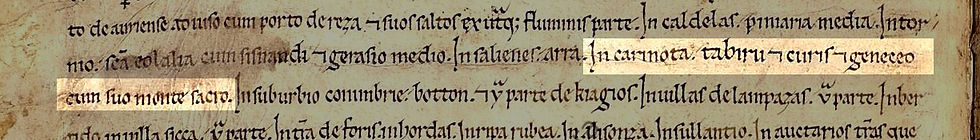 to de auriense ad uiso cum porto de reza ⁊ suos saltos ex utq; fluminis parte. In caldelas. pimaria media. In tor
no. scã eolalia cum sisnandi ⁊ gerasio medio. In salienes. arra. In carnota. tabiru ⁊ curis ⁊ geneceo
cum suo monte sacro. In suburbio conimbrie. botton. ⁊ parte de kiagios. In uillas de lampazas. parte. In ber
uilla sicca. parte. de foris. in hordas. In ripa rubea. In In auctarios trãs que